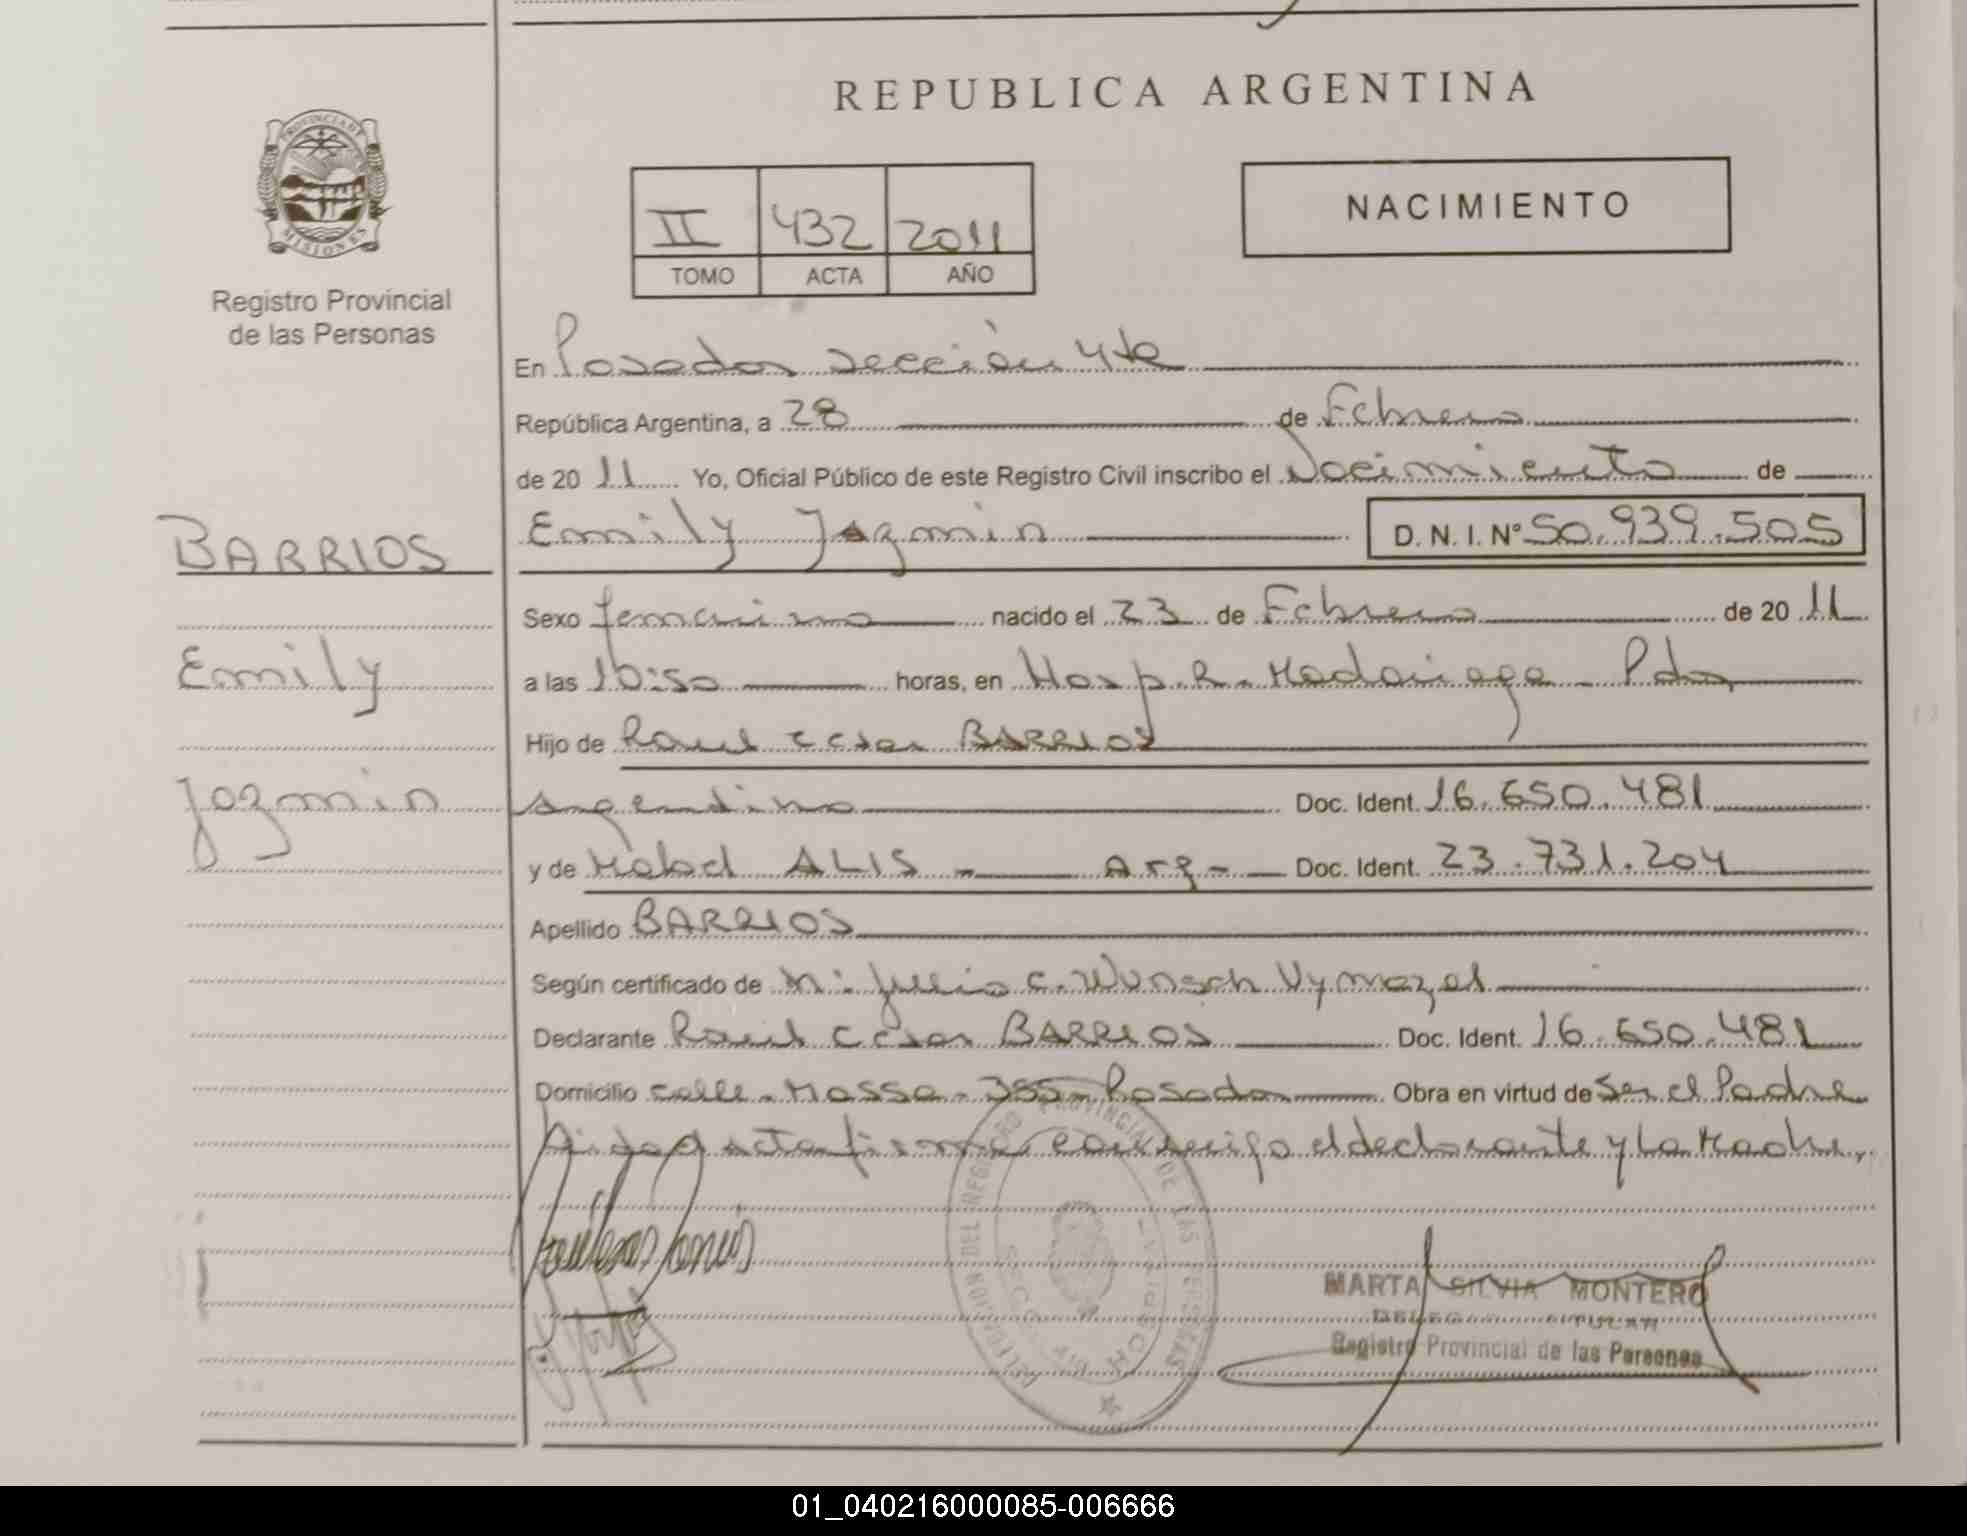 REPUBLICA ARGENTINA
PROVINCIA DE MISIONES
Registro Provincial
de las Personas
II 432 2011
TOMO ACTA AÑO
NACIMIENTO
En Posadas sección 4ta
República Argentina, a 28 de Febrero
de 20 11 Yo, Oficial Público de este Registro Civil inscribo el Nacimiento de
BARRIOS
Emily
Jazmin
Emily Jazmin D. N. I. Nº 50.939.505
Sexo femenino nacido el 23 de Febrero de 20 11
a las 10:50 horas, en Hosp. R. Madariaga - Pdas
Hijo de Raul Cesar BARRIOS
Argentino Doc. Ident. 16.650.481
y de Mabel ALIS - Arg - Doc. Ident. 23.731.204
Apellido BARRIOS
Según certificado de C. Wunsch Vymazal
Declarante Raul Cesar BARRIOS Doc. Ident. 16.650.481
Domicilio calle - Massa - 355 - Posadas Obra en virtud de Ser el Padre
acta firma conmigo el declarante y La Madre.
DELEGACION DEL REGISTRO PROVINCIAL DE LAS PERSONAS
MARTA SILVIA MONTERO
DELEGADA TITULAR
Registro Provincial de las Personas
01_040216000085-006666